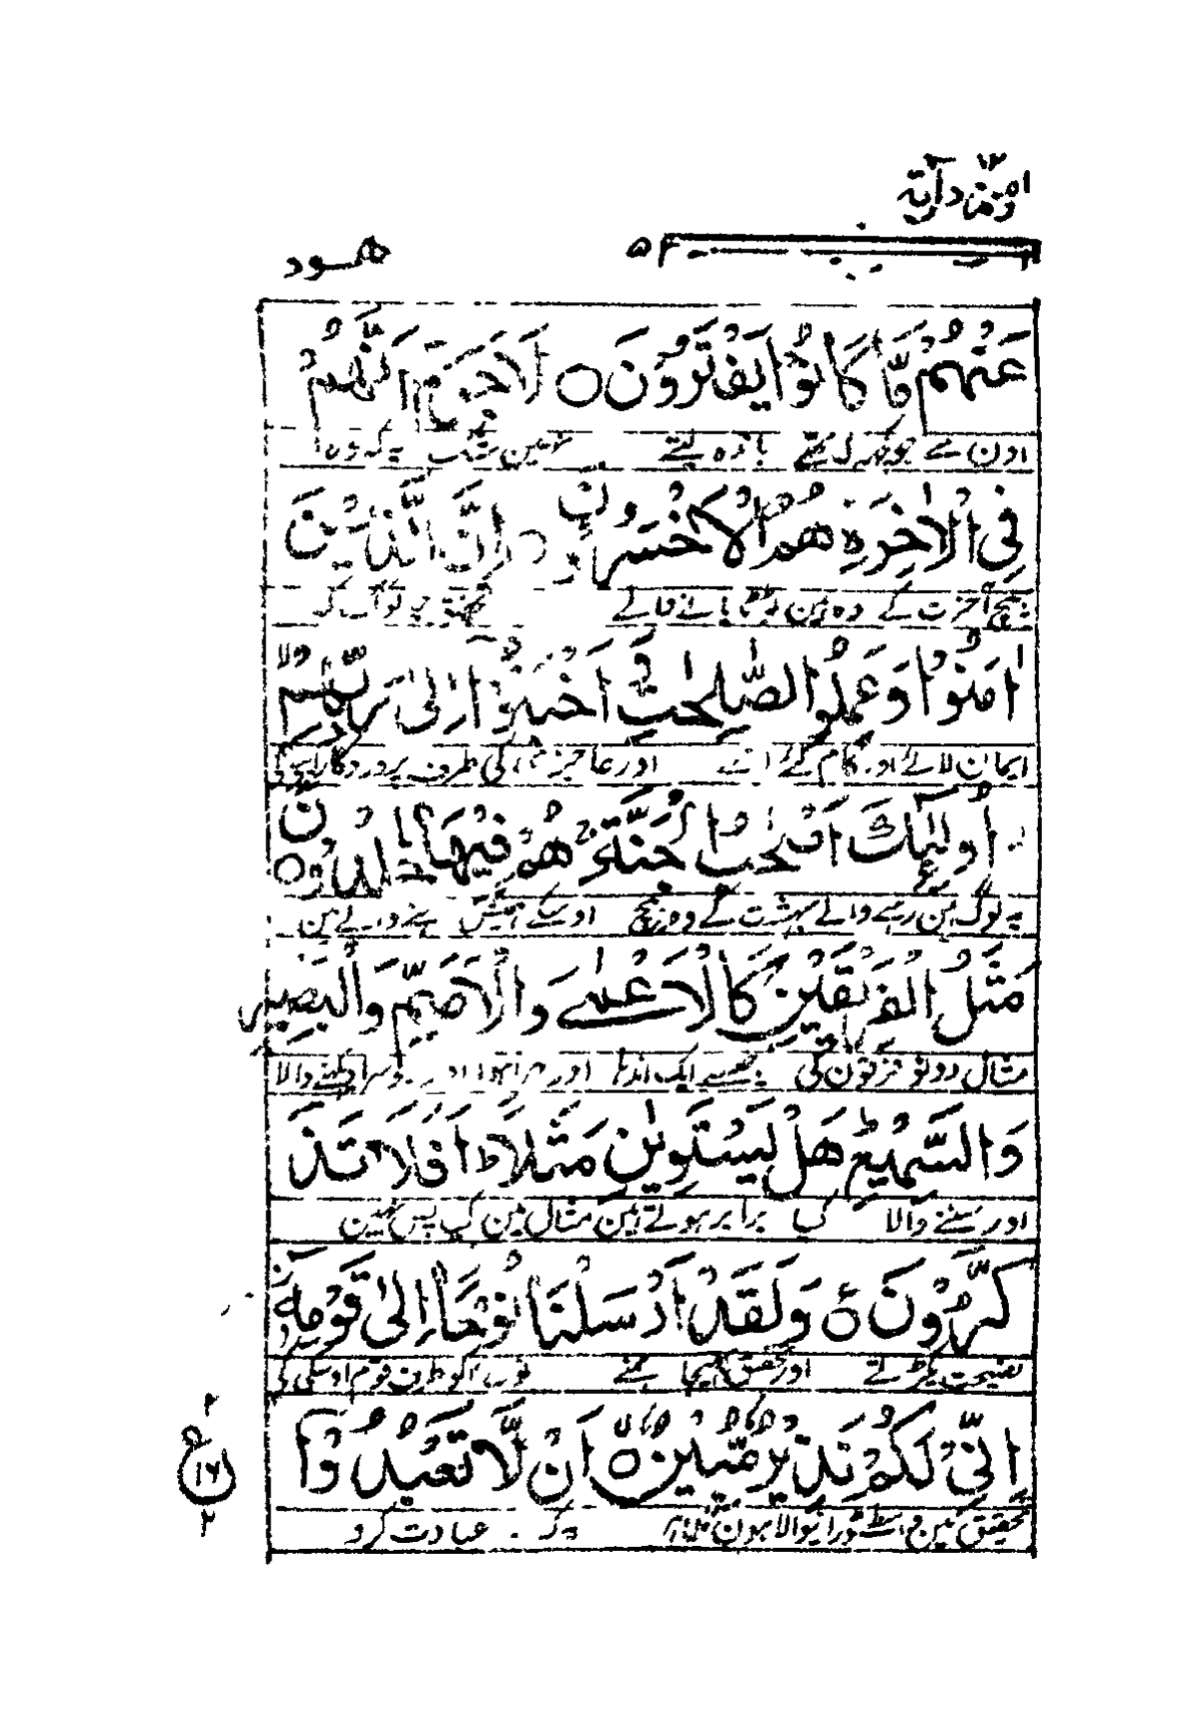 ومن دآبة ١٢
٥٤ هود
عَنْهُمْ مَّا كَانُوْا يَفْتَرُوْنَ ۝ لَا جَرَمَ اَنَّهُمْ
اون سے جو کچھ کہ تھے باندہ لیتے نہین شک یہ کہ وہ
فِى الْاٰخِرَةِ هُمُ الْاَخْسَرُوْنَ ۝ اِنَّ الَّذِيْنَ
بیچ آخرت کے وہ ہین ٹوٹا پانے والے تحقیق جو لوگ کہ
اٰمَنُوْا وَعَمِلُوا الصّٰلِحٰتِ وَ اَخْبَتُوْٓا اِلٰى رَبِّهِمْ ۙ
ایمان لائے اور کام کئے اور عاجزی کی طرف پروردگار اپنے
اُولٰٓئِكَ اَصْحٰبُ الْجَنَّةِ ۚ هُمْ فِيْهَا خٰلِدُوْنَ ۝
یہ لوگ ہین رہنے والے بہشت کے وہ بیچ اوسکے ہمیش رہنے والے ہین
مَثَلُ الْفَرِيْقَيْنِ كَالْاَعْمٰى وَالْاَصَمِّ وَالْبَصِيْرِ
مثال دونو فرقون کی جیسے ایک اندہا اور بہرا اور دوسرا دیکھنے والا
وَالسَّمِيْعِ ؕ هَلْ يَسْتَوِيٰنِ مَثَلًا ؕ اَفَلَا تَذَ
اور سننے والا کیا برابر ہوتے ہین مثال مین کیا پس نہین
كَّرُوْنَ ۝ ع وَلَقَدْ اَرْسَلْنَا نُوْحًا اِلٰى قَوْمِهٖٓ
نصیحت پکڑتے اور تحقیق بھیجا ہمنے نوح کو طرف قوم اوسکی کی
اِنِّىْ لَكُمْ نَذِيْرٌ مُّبِيْنٌ ۝ اَنْ لَّا تَعْبُدُوْٓا
تحقیق مین واسطے ڈرانیوالا ہون یہ کہ عبادت کرو
٢
ع
١٦
٢